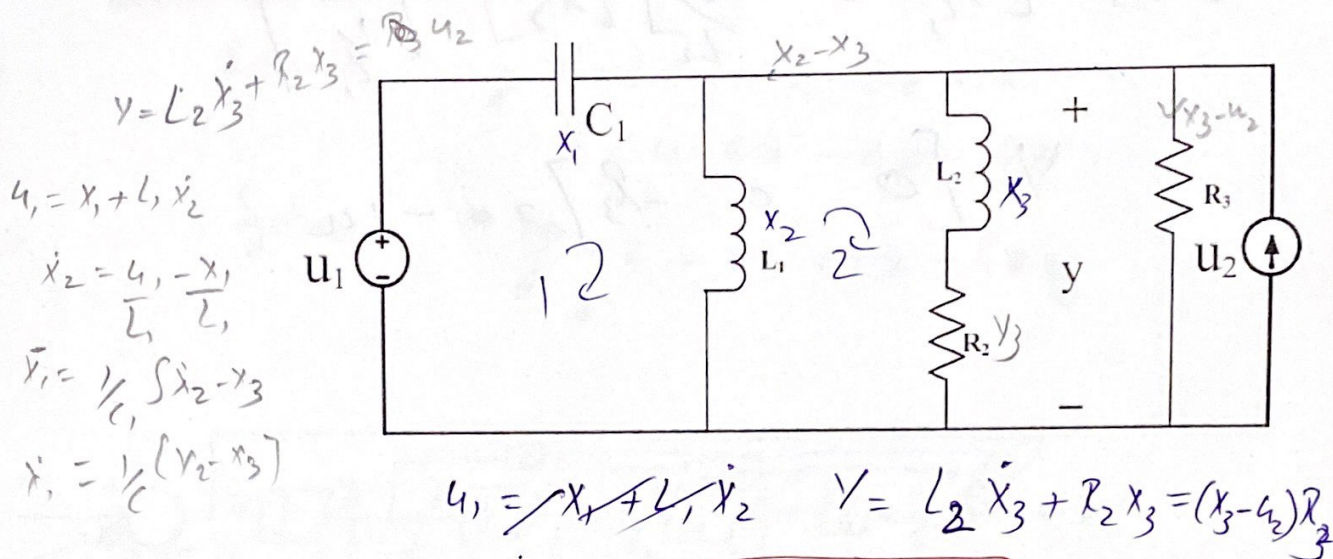 y = L₂ẋ₃ + R₂x₃ = R₃ u₂
u₁ = x₁ + L₁ẋ₂
ẋ₂ = u₁/L₁ - x₁/L₁
x₁ = 1/C₁ ∫ x₂ - x₃
ẋ₁ = 1/C (x₂ - x₃)
x₂-x₃
C₁
x₁
u₁
+
-
1
x₂
L₁
2
L₂
x₃
R₂
y₃
+
y
−
x₃-u₂
R₃
u₂
u₁ = x₁ + L₁ẋ₂
Y = L₂ẋ₃ + R₂x₃ = (x₃-u₂)R₂